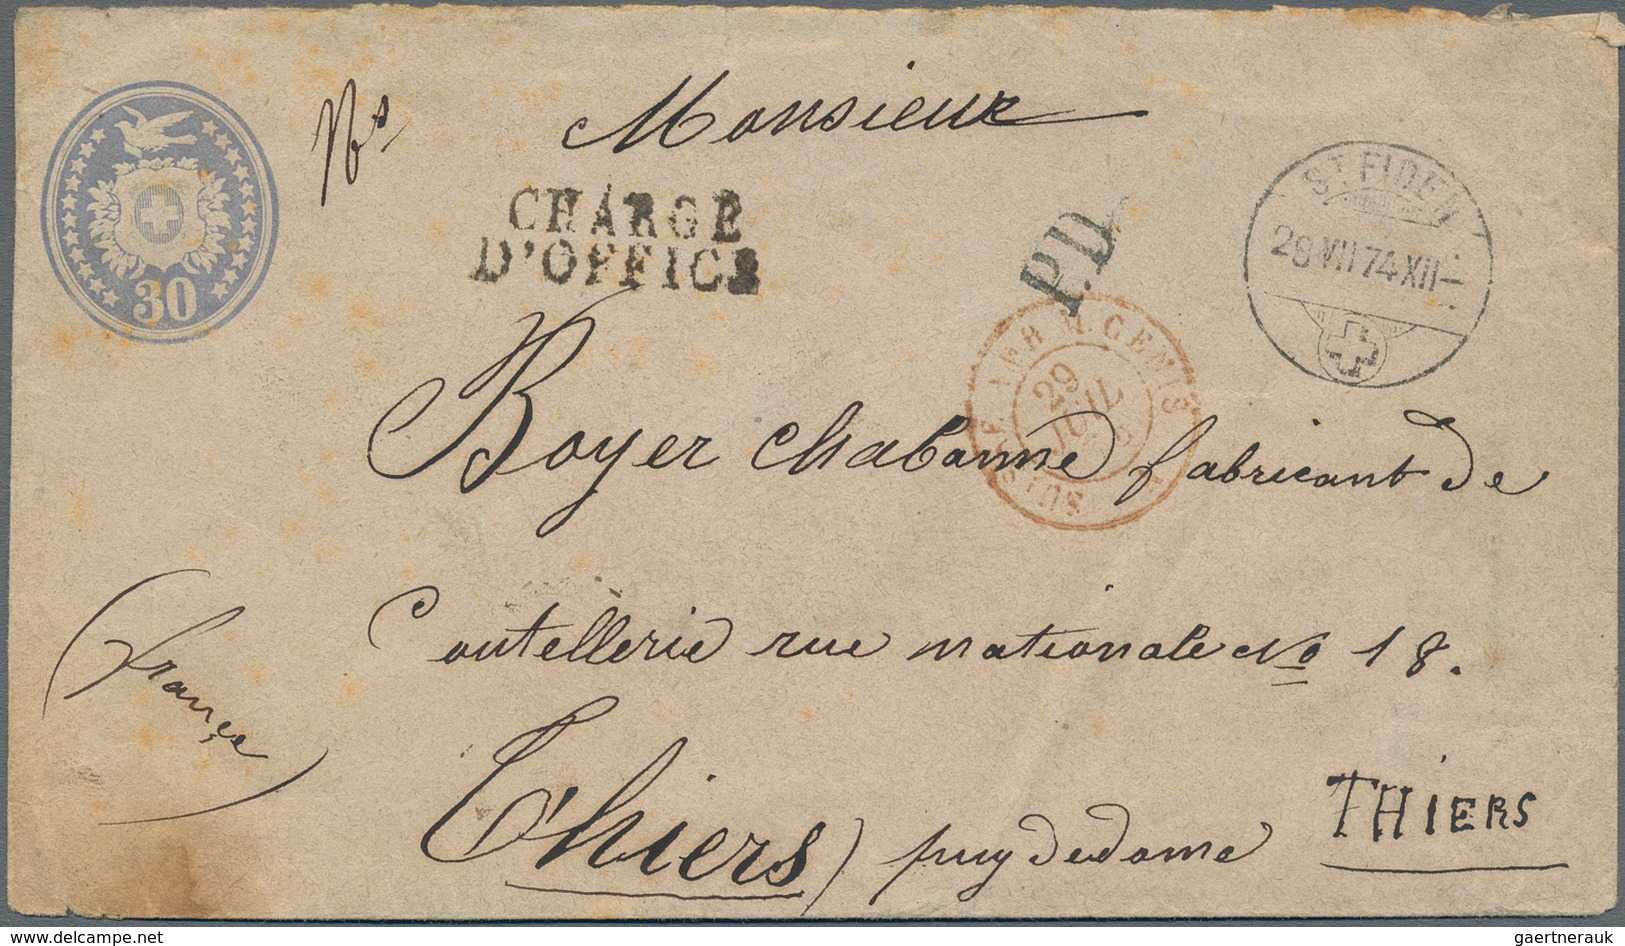 30
Monsieur
CHARGE
D'OFFICE
P.D.
ST. FIDEN
28 VII 74 XII
29
JUIL
SUISSE
Boyer chabanne fabricant de
Coutellerie rue nationale No 18.
(françe)
Thiers) puy de dome
THIERS
delcampe.net
gaertnerauk